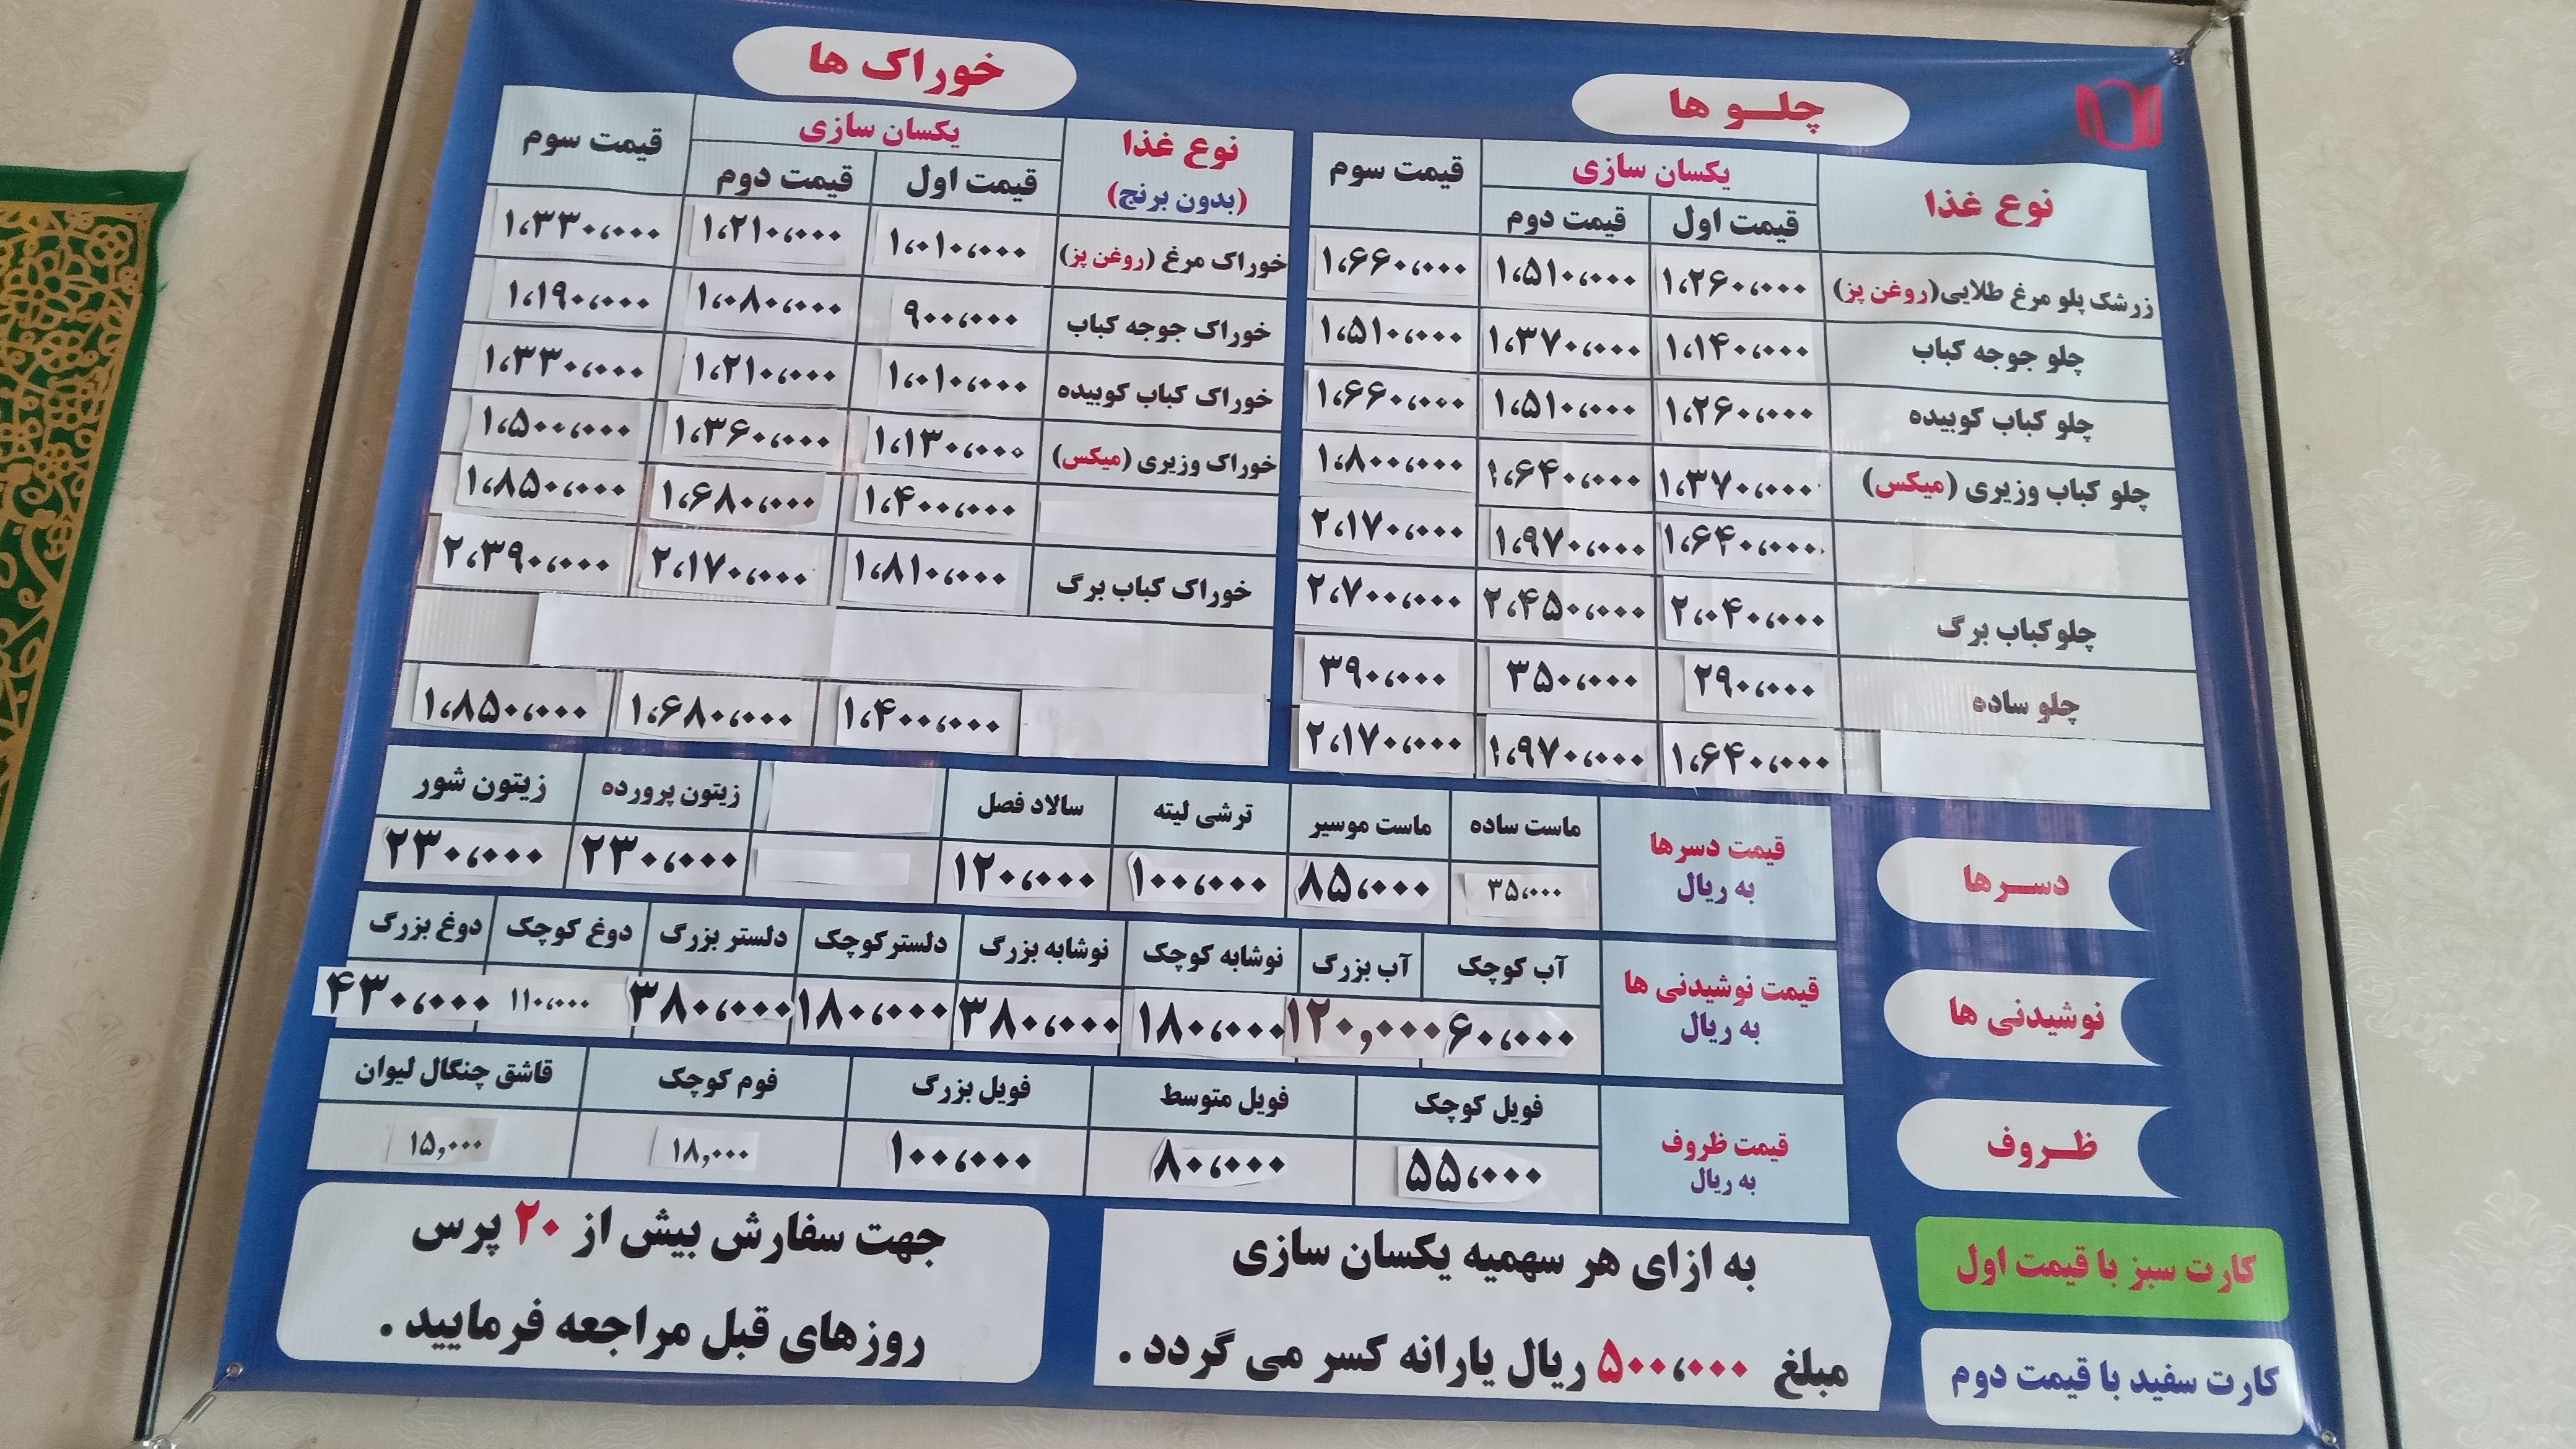 چلـــو ها
نوع غذا یکسان سازی قیمت سوم
قیمت اول قیمت دوم
زرشک پلو مرغ طلایی(روغن پز) ۱،۲۶۰،۰۰۰ ۱،۵۱۰،۰۰۰ ۱،۶۶۰،۰۰۰
چلو جوجه کباب ۱،۱۴۰،۰۰۰ ۱،۳۷۰،۰۰۰ ۱،۵۱۰،۰۰۰
چلو کباب کوبیده ۱،۲۶۰،۰۰۰ ۱،۵۱۰،۰۰۰ ۱،۶۶۰،۰۰۰
چلو کباب وزیری (میکس) ۱،۳۷۰،۰۰۰ ۱،۶۴۰،۰۰۰ ۱،۸۰۰،۰۰۰
۱،۶۴۰،۰۰۰ ۱،۹۷۰،۰۰۰ ۲،۱۷۰،۰۰۰
چلوکباب برگ ۲،۰۴۰،۰۰۰ ۲،۴۵۰،۰۰۰ ۲،۷۰۰،۰۰۰
چلو ساده ۲۹۰،۰۰۰ ۳۵۰،۰۰۰ ۳۹۰،۰۰۰
۱،۶۴۰،۰۰۰ ۱،۹۷۰،۰۰۰ ۲،۱۷۰،۰۰۰
خوراک ها
نوع غذا یکسان سازی قیمت سوم
(بدون برنج) قیمت اول قیمت دوم
خوراک مرغ (روغن پز) ۱،۰۱۰،۰۰۰ ۱،۲۱۰،۰۰۰ ۱،۳۳۰،۰۰۰
خوراک جوجه کباب ۹۰۰،۰۰۰ ۱،۰۸۰،۰۰۰ ۱،۱۹۰،۰۰۰
خوراک کباب کوبیده ۱،۰۱۰،۰۰۰ ۱،۲۱۰،۰۰۰ ۱،۳۳۰،۰۰۰
خوراک وزیری (میکس) ۱،۱۳۰،۰۰۰ ۱،۳۶۰،۰۰۰ ۱،۵۰۰،۰۰۰
۱،۴۰۰،۰۰۰ ۱،۶۸۰،۰۰۰ ۱،۸۵۰،۰۰۰
خوراک کباب برگ ۱،۸۱۰،۰۰۰ ۲،۱۷۰،۰۰۰ ۲،۳۹۰،۰۰۰
۱،۴۰۰،۰۰۰ ۱،۶۸۰،۰۰۰ ۱،۸۵۰،۰۰۰
دســرها
قیمت دسرها
به ریال
ماست ساده ماست موسیر ترشی لیته سالاد فصل زیتون پرورده زیتون شور
۳۵،۰۰۰ ۸۵،۰۰۰ ۱۰۰،۰۰۰ ۱۲۰،۰۰۰ ۲۳۰،۰۰۰ ۲۳۰،۰۰۰
نوشیدنی ها
قیمت نوشیدنی ها
به ریال
آب کوچک آب بزرگ نوشابه کوچک نوشابه بزرگ دلسترکوچک دلستر بزرگ دوغ کوچک دوغ بزرگ
۶۰،۰۰۰ ۱۲۰,۰۰۰ ۱۸۰،۰۰۰ ۳۸۰،۰۰۰ ۱۸۰،۰۰۰ ۳۸۰،۰۰۰ ۱۱۰،۰۰۰ ۴۳۰،۰۰۰
ظـــروف
قیمت ظروف
به ریال
فویل کوچک فویل متوسط فویل بزرگ فوم کوچک قاشق چنگال لیوان
۵۵،۰۰۰ ۸۰،۰۰۰ ۱۰۰،۰۰۰ ۱۸,۰۰۰ ۱۵,۰۰۰
کارت سبز با قیمت اول
کارت سفید با قیمت دوم
به ازای هر سهمیه یکسان سازی
مبلغ ۵۰۰،۰۰۰ ریال یارانه کسر می گردد .
جهت سفارش بیش از ۲۰ پرس
روزهای قبل مراجعه فرمایید .